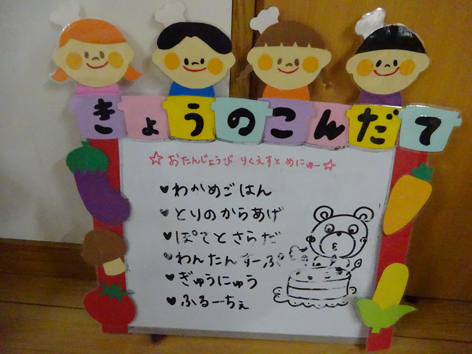 きょうのこんだて
☆おたんじょうび りくえすと めにゅー☆
♥わかめごはん
♥とりのからあげ
♥ぽてとさらだ
♥わんたんすーぷ
♥ぎゅうにゅう
♥ふるーちぇ